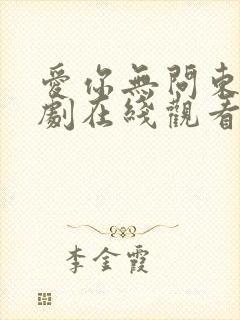 愛你無問東
劇在綫觀看
李金霞